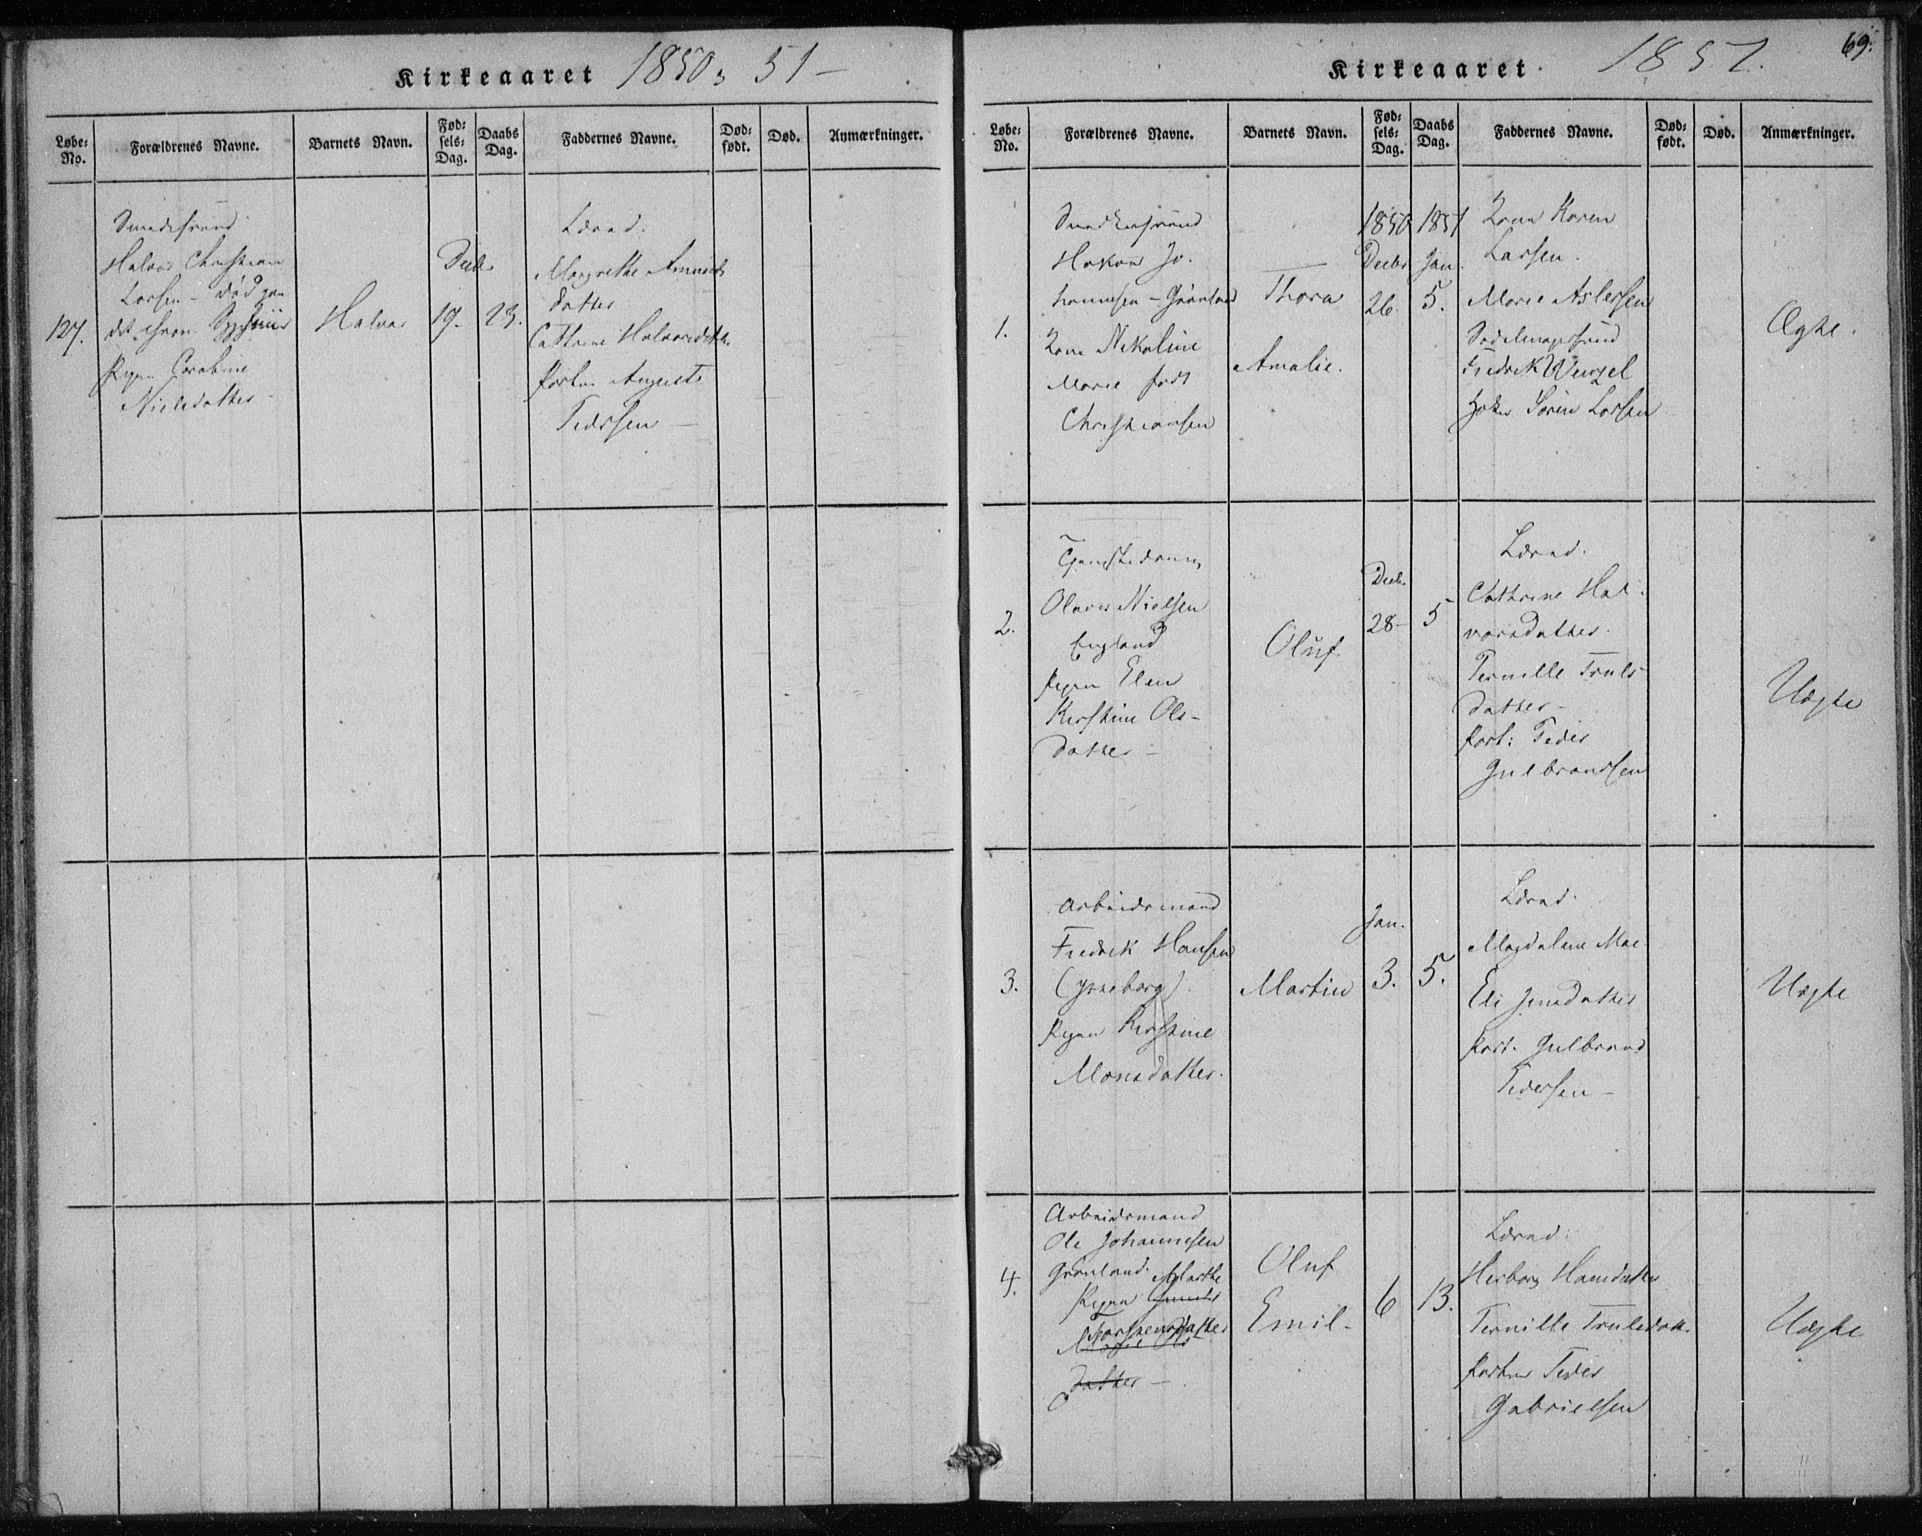 Kirkeaaret 1850, 51 –
Løbe: No.
Forældrenes Navne.
Barnets Navn.
Fød: sels: Dag.
Daabs Dag.
Faddernes Navne.
Død: født.
Død.
Anmærkninger.
127.
Smedesvend
Halvor Christian
Larsen – død paa
Pigen Corabine
Nielsdatter
Halvor
Decb.
19.
23.
Lærred.
Margrethe Amunds
datter
Cathrine Halvorsdatter
Portner August
Pedersen –
Kirkeaaret 1851.
69.
Løbe: No.
Forældrenes Navne.
Barnets Navn.
Fød: sels: Dag.
Daabs Dag.
Faddernes Navne.
Død: født.
Død.
Anmærkninger.
1.
Smedesvend
Hakon Jo-
hannesen – Grønland
Kone Nikoline
Marie født
Christiansen
Thora
Amalie.
1850
Decbr
26
1851
Jan.
5.
Kone Karen
Larsen.
Marie Aslersen
Sadelmagersvend
Fredrik Wenzel
Søren Larsen
Ægte.
2.
Tjenestedreng
Olaves Nielsen
England
Pigen Elen
Kirstine Ols-
datter –
Oluf.
Decb.
28 –
5
Cathrine Hal-
vorsdatter.
Pernille Truls
datter –
Port: Peder
Gulbrandsen
Uægte
3.
Arbeidsmand
Fredrik Hansen
Pigen Kirstine
Monsdatter.
Martin
Jan.
3.
5.
Magdalene Moe
Eli Jensdatter
Port. Gulbrand
Pedersen –
Uægte
4.
Arbeidsmand
Ole Johannesen
Grønland. Marthe
Pigen
Torstensdatter
datter –
Oluf
Emil –
6
13.
Herborg Hansdatter
Pernille Trulsdatt.
Portner Peder
Gabrielsen
Uægte